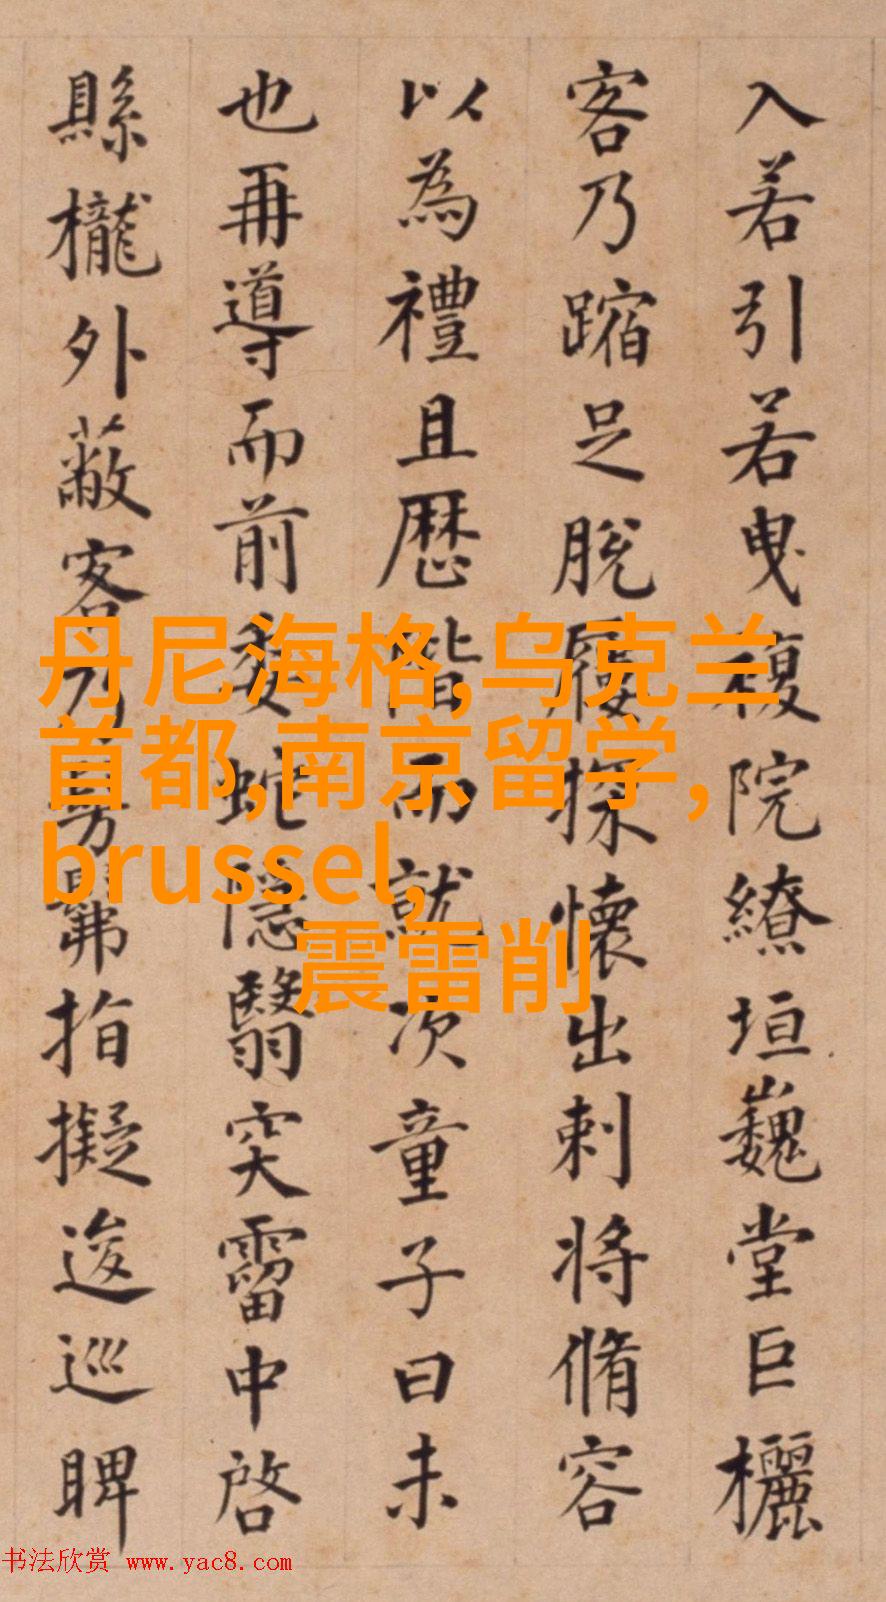 入若引若曳複院繚垣巍堂巨欐
客乃蹜足脫屨探懷出刺將脩容
以為禮且歷階而就次童子曰未
也再導而前委蛇隱翳穾霤中啓
縣櫳外蔽客乃
指擬逡巡睥
丹尼海格,乌克兰
首都,南京留学,
brussel,
震雷削
书法欣赏 www.yac8.com